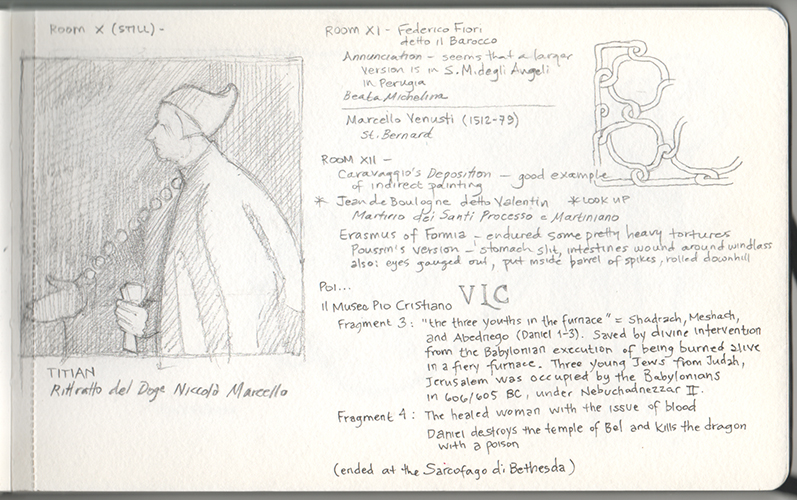 ROOM X (STILL) -
TITIAN
Rittratto del Doge Niccolò Marcello
ROOM XI - Federico Fiori
detto il Barocco
Annunciation - seems that a larger
version is in S.M. degli Angeli
in Perugia
Beata Michelina
Marcello Venusti (1512-79)
St. Bernard
ROOM XII -
Caravaggio's Deposition - good example
of indirect painting
* Jean de Boulogne detto Valentin * LOOK UP
Martirio dei Santi Processo e Martiniano
Erasmus of Formia - endured some pretty heavy tortures
Poussin's version - stomach slit, intestines wound around windlass
also: eyes gouged out, put inside barrel of spikes, rolled downhill
POI...
Il Museo Pio Cristiano VLC
Fragment 3: "the three youths in the furnace" = Shadrach, Meshach,
and Abednego (Daniel 1-3). Saved by divine intervention
from the Babylonian execution of being burned alive
in a fiery furnace. Three young Jews from Judah,
Jerusalem was occupied by the Babylonians
in 606/605 BC, under Nebuchadnezzar II.
Fragment 4: The healed woman with the issue of blood
Daniel destroys the temple of Bel and kills the dragon
with a poison
(ended at the Sarcofago di Bethesda)